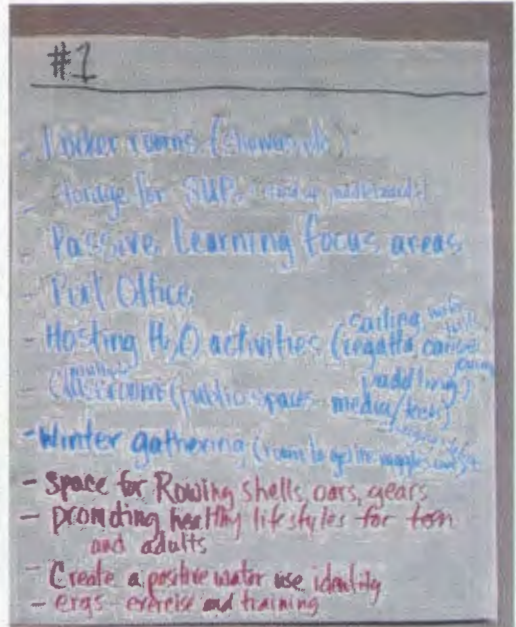 #1
- Locker rooms (showers
- Storage for SUPs (stand up paddleboards)
- Passive Learning focus areas
- Port Office
sailing
- Hosting H2O activities (regatta canoe
paddling)
multiple
- Classroom (public spaces - media/tech)
- Winter gathering (room to get the
- Space for Rowing shells, oars, gears
- promoting healthy lifestyles for teen
and adults
- Create a positive water use identity
- ergs - exercise and training